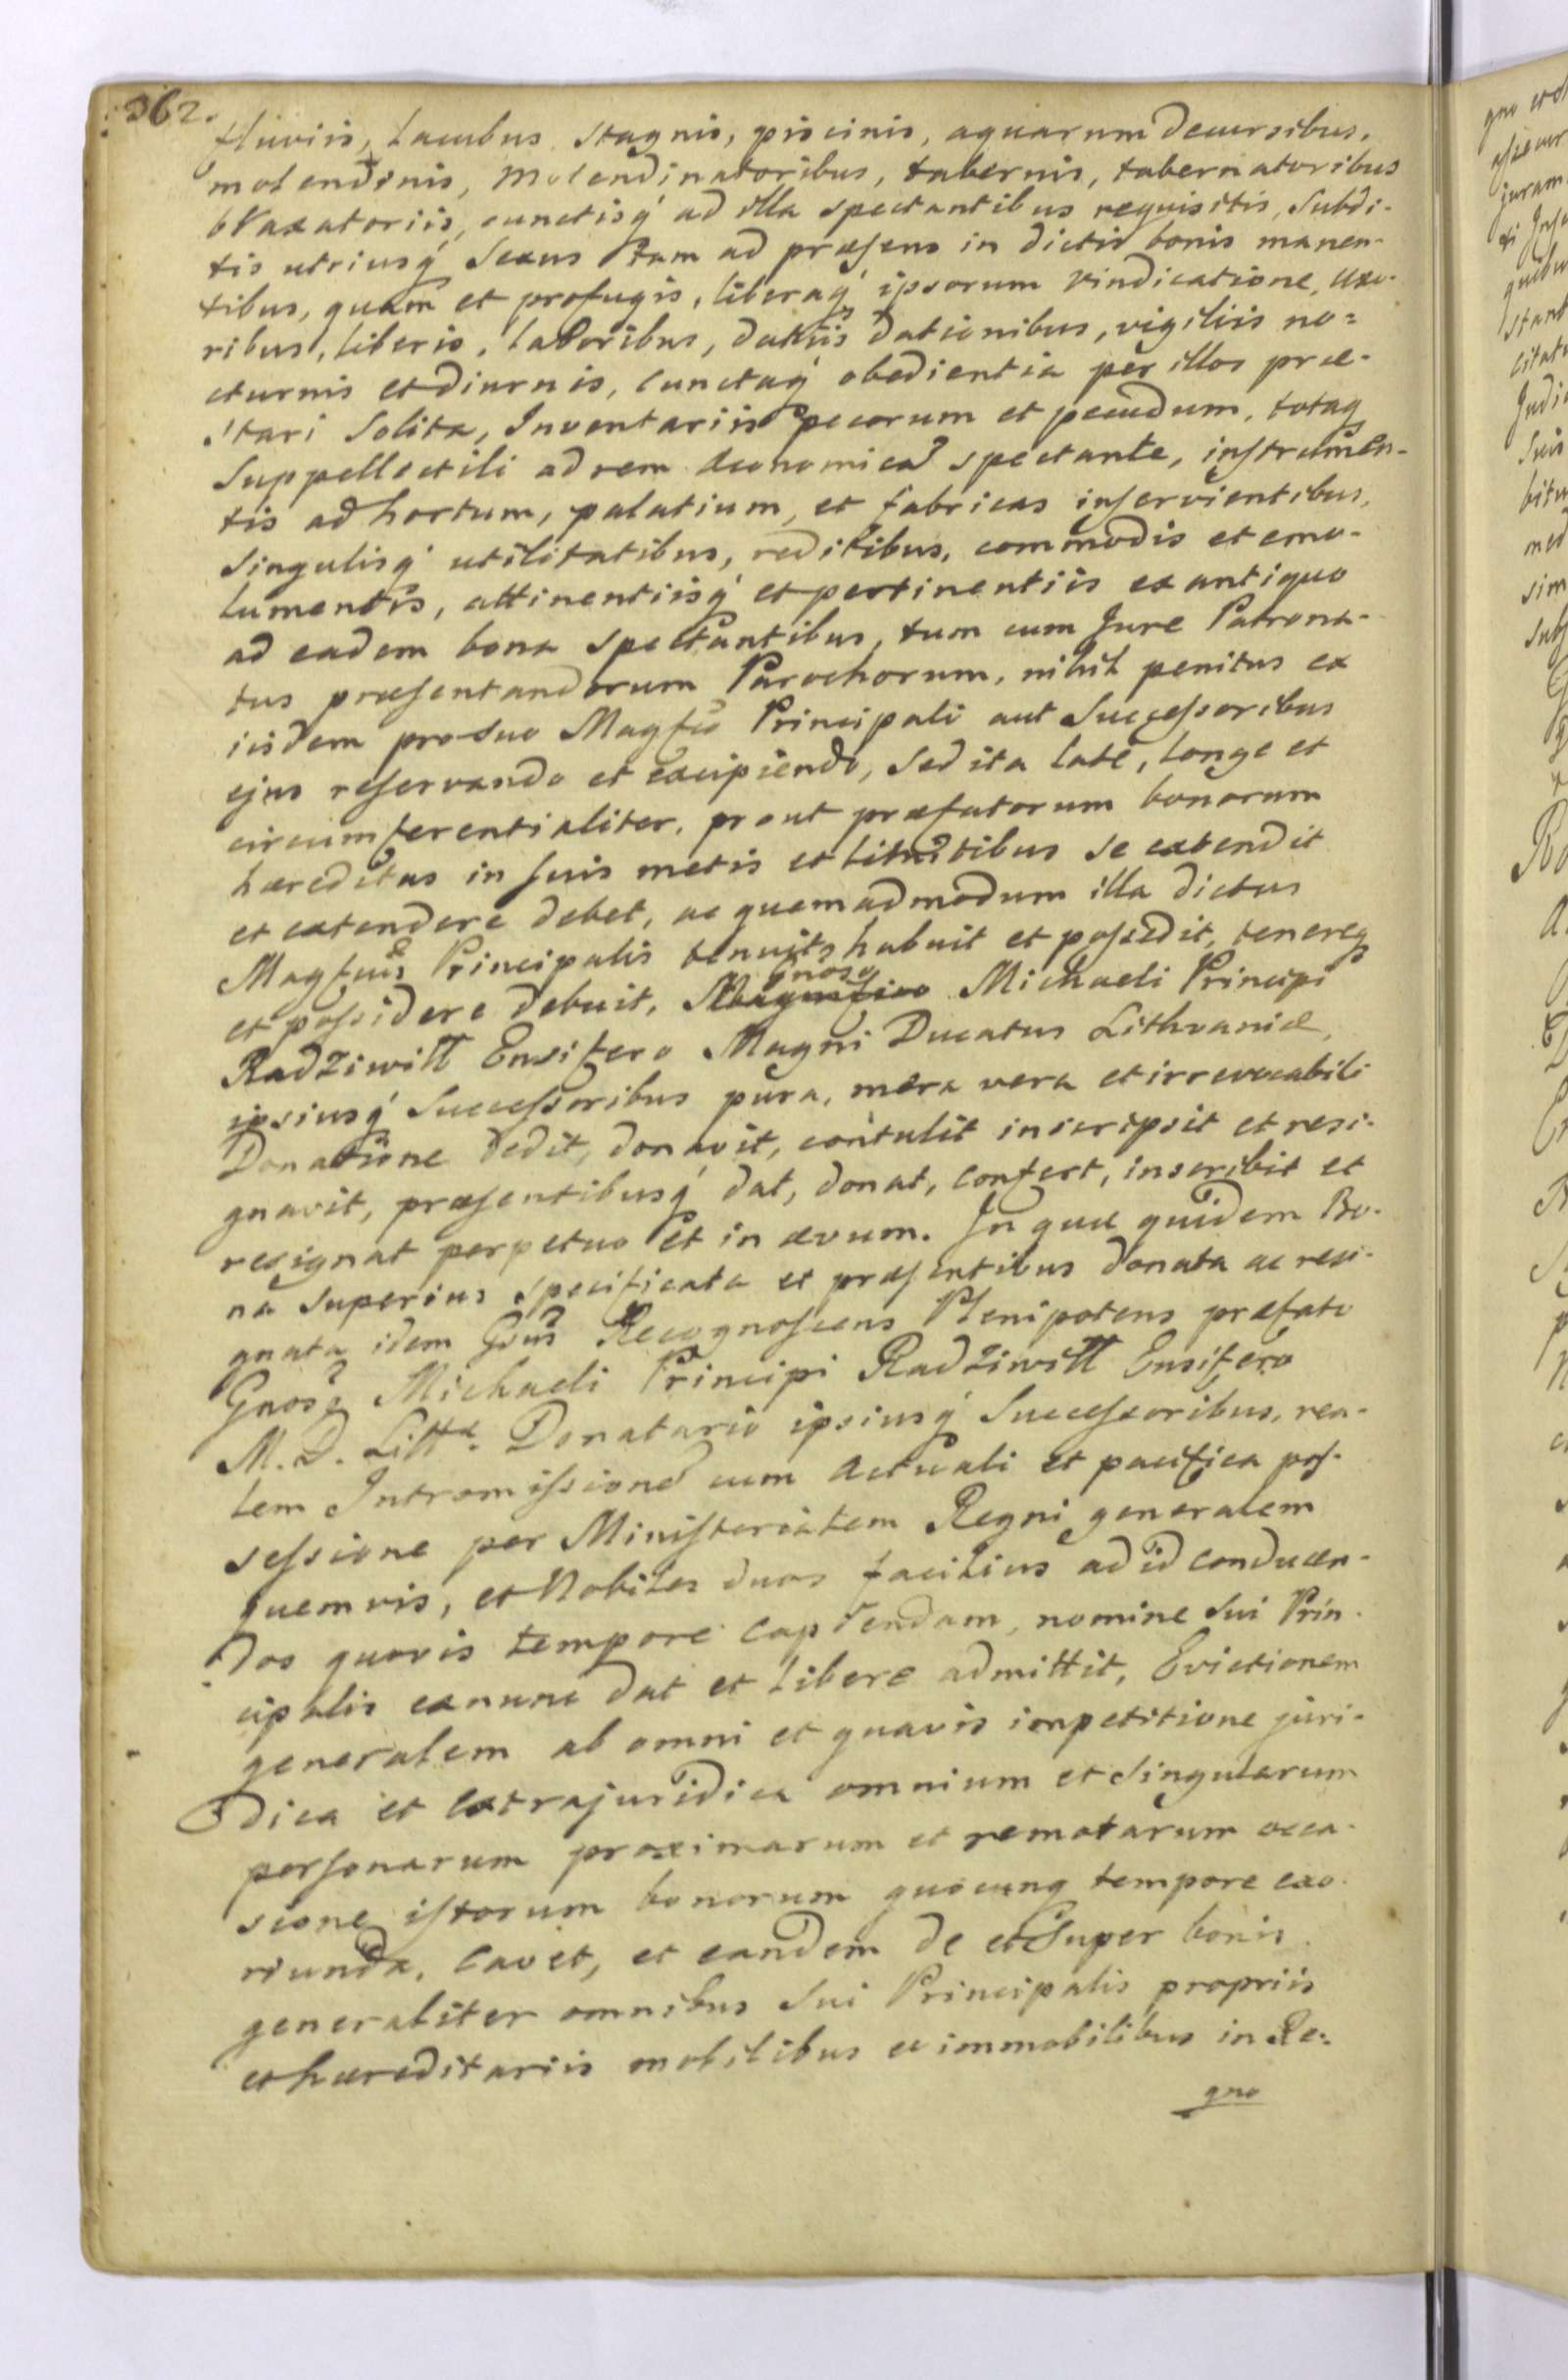 362.
fluviis, lacubus, stagnis, piscinis, aquarum decursibus,
molendinis, Molendinatoribus, tabernis, tabernatoribus
braxatoriis, cunctisq́ ad illa spectantibus requisitis, Subdi-
tis utriusq́ Sexus tam ad præsens in dictis bonis manen-
tibus, quam et profugis, liberaq́ ipsorum vindicatione, uxo-
ribus, liberis, laboribus, datiis dationibus, vigiliis no=
cturnis et diurnis, cunctaq́ obedientia per illos præ-
stari Solita, Inventariis pecorum et pecudum, totaq
Suppellectili ad rem œconomicã spectante, instrumen-
tis ad hortum, palatium, et fabricas inservientibus,
Singulisq́ utilitatibus, reditibus, commodis et emo-
lumentis, attinentiisq́ et pertinentiis ex antiquo
ad eadem bona Spectantibus, tum cum Jure Patrona-
tus præsentandorum Parochorum, nihil penitus ex
iisdem pro suo Magfco Principali aut Successoribus
ejus reservando et excipiendo, Sed ita late, longe et
circumferentialiter, prout præfatorum bonorum
hæreditas in suis metis et limitibus se extendit
et extendere debet, ac quemadmodum illa dictus
Magfcus Principalis tenuit, habuit et possedit, tenereq
et possidere debuit, Gnoso Michaeli Principi
Radziwiłł Ensifero Magni Ducatus Lithvaniæ,
ipsiusq́ Successoribus pura, mera vera et irrevocabili
Donatione dedit, donavit, contulit inscripsit et resi-
gnavit, præsentibusq́ dat, donat, confert, inscribit et
resignat perpetuo et in ævum. In quæ quidem Bo-
na Superius specificata et præsentibus donata ac resi-
gnata idem Gsus Recognoscens Plenipotens præfato
Gnoso Michaeli Principi Radziwiłł Ensifero
M. D. Littæ. Donatario ipsiusq́ Successoribus, rea-
lem Intromissionẽ cum actuali et pacifica pos-
sessione per Ministerialem Regni generalem
quemvis, et Nobiles duos facilius ad id conducen-
dos quovis tempore capiendam, nomine sui Prin-
cipalis exnunc dat et libere admittit, Evictionem
generalem ab omni et quavis impetitione juri-
dica et extrajuridica omnium et Singularum
personarum proximarum et remotarum occa-
sione istorum bonorum quocunq tempore exo-
riunda, cavet, et eandem de et Super bonis
generaliter omnibus Sui Principalis propriis
et hæreditariis mobilibus et immobilibus in Re=
gno